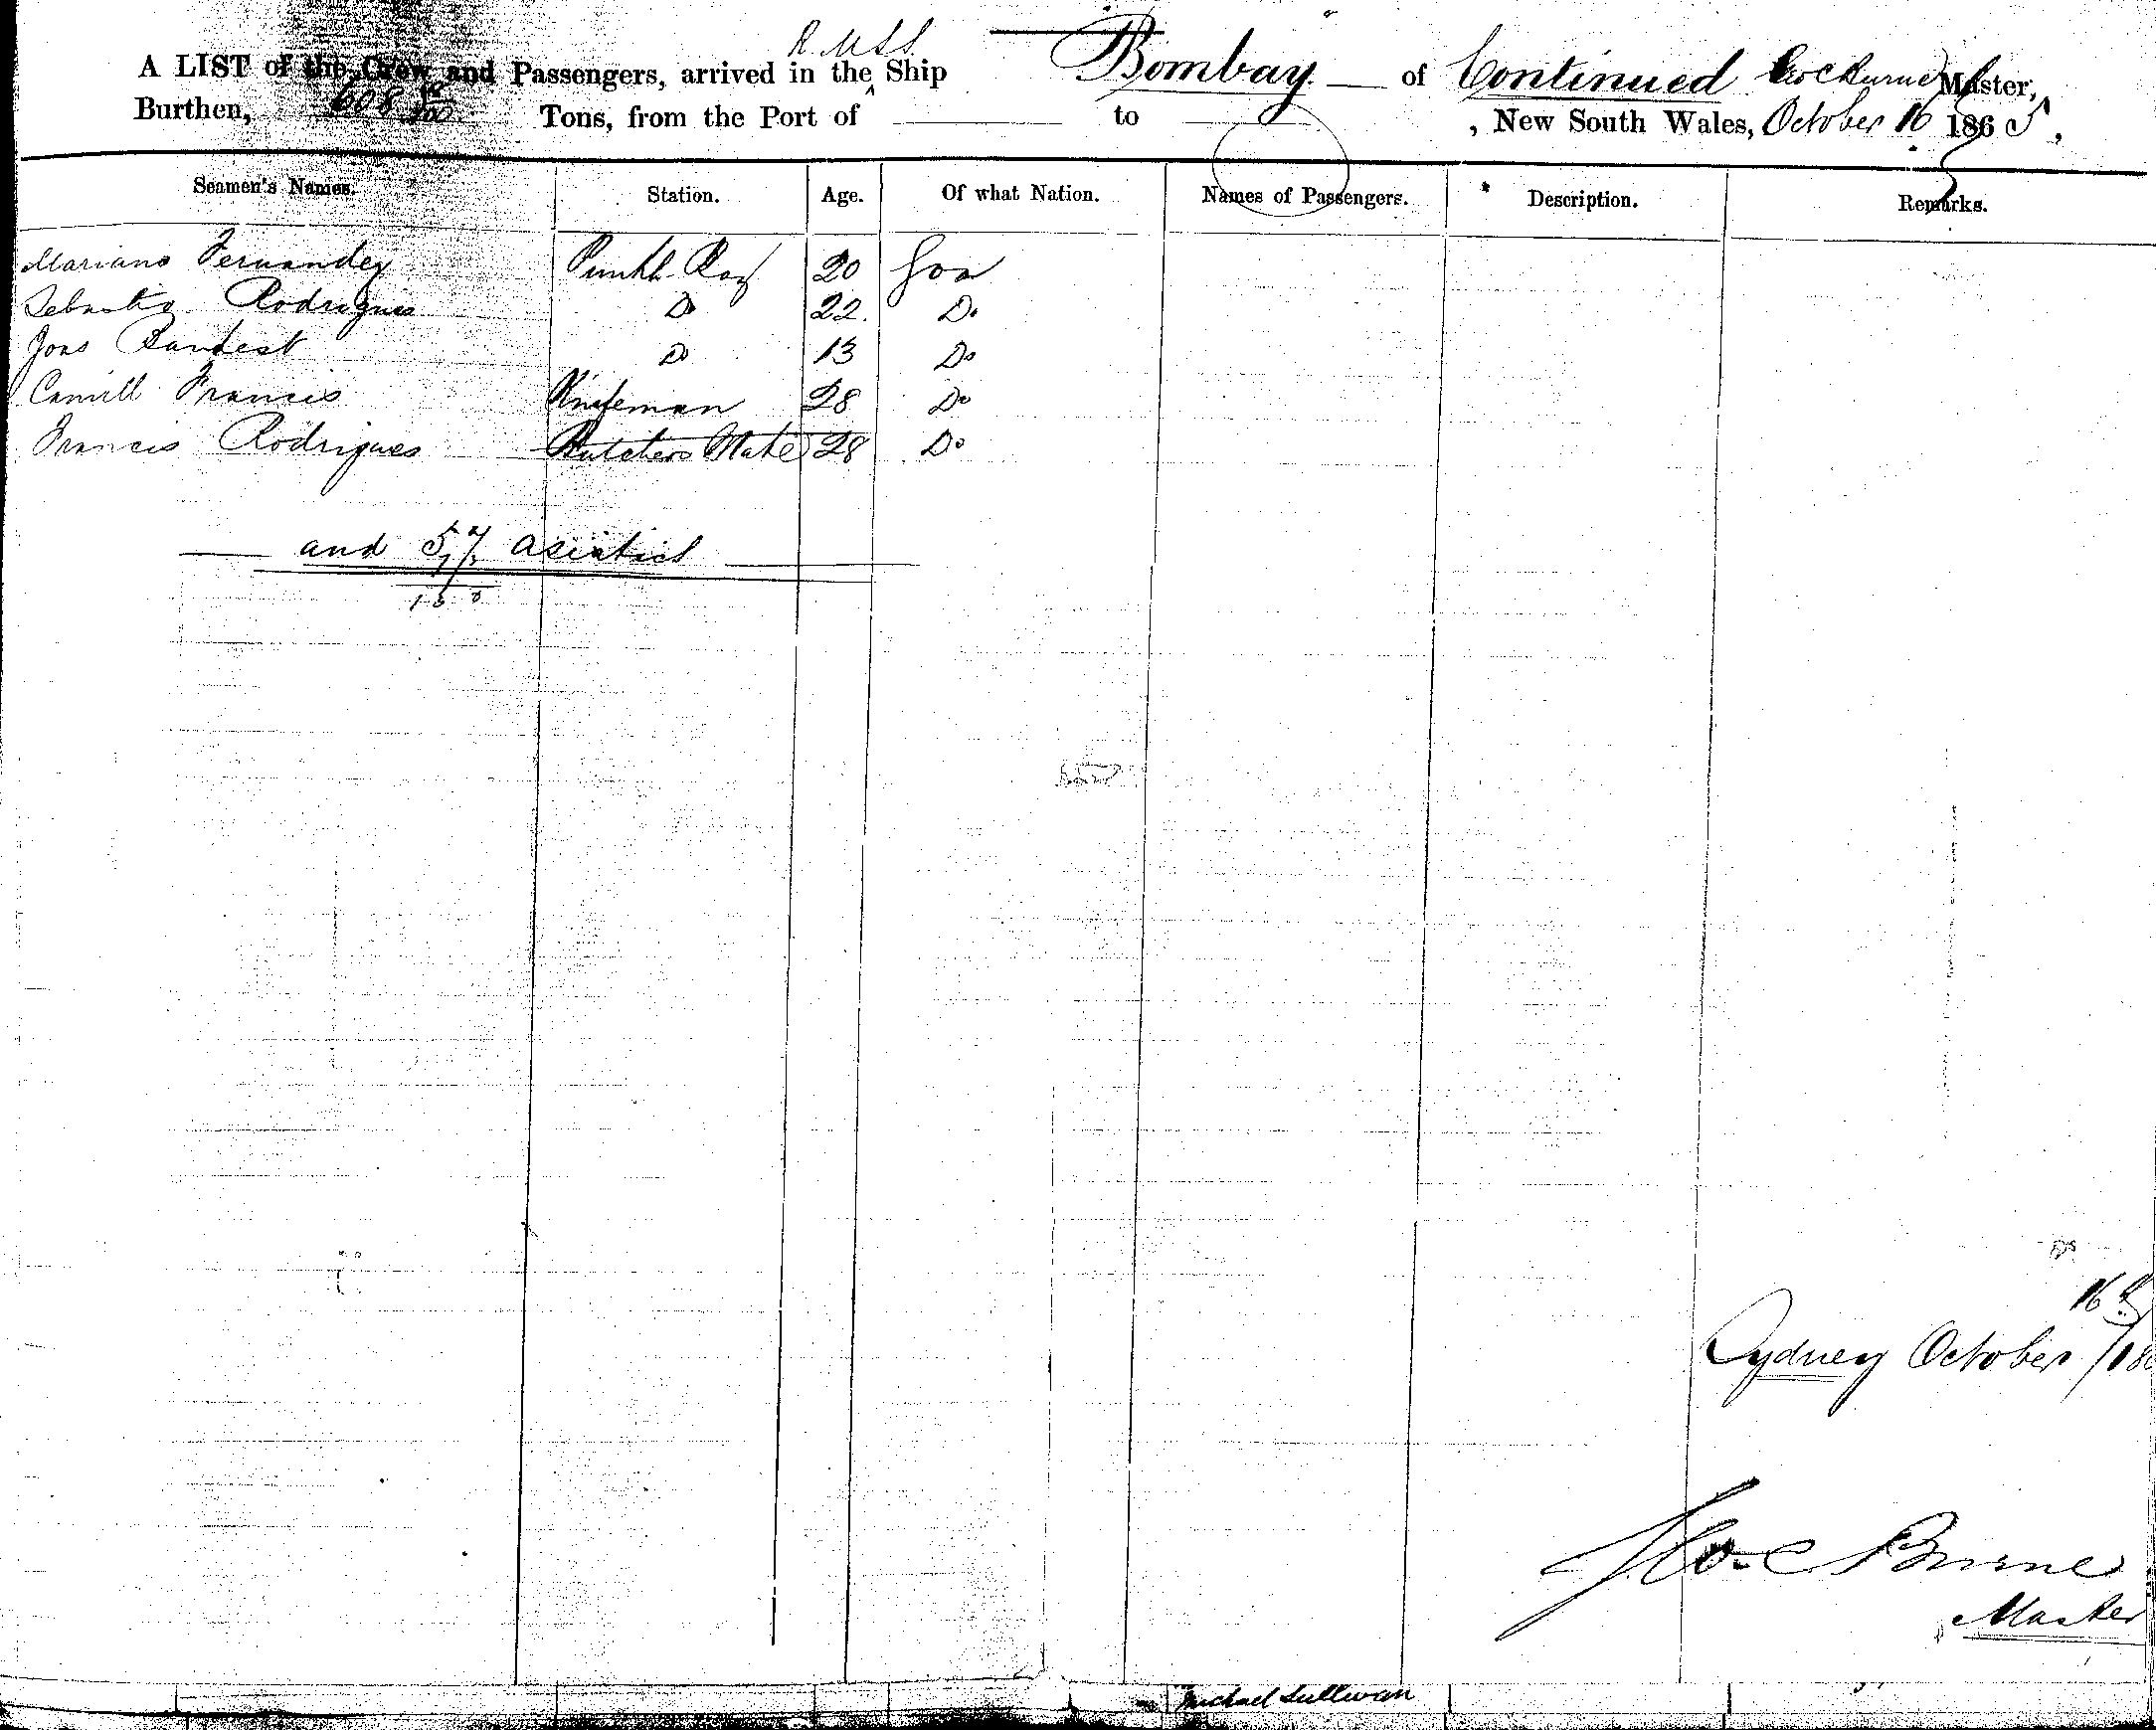 R.M.S.S.
A LIST of the Crew and Passengers, arrived in the Ship Bombay of Continued Master,
Burthen, 608 Tons, from the Port of to , New South Wales, October 16 1865,
Seamen's Names. Station. Age. Of what Nation. Names of Passengers. Description. Remarks.
Mariano Fernandez 20 Goa
Rodrigues Do 22 Do
Do 13 Do
Camill Francis Knifeman 28 Do
Francis Rodrigues Butchers Mate 28 Do
and 57 Asiatics
Sydney October 16th /18
Burne
Master
Michael Sullivan